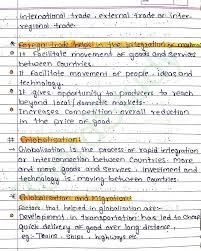 international trade, external trade or inter-
regional trade.
* Foreign trade helps in the integration of markets
It facilitate movement of goods and services
between countries.
It facilitate movement of people, ideas and
technology.
It gives opportunity to producers to reach
beyond local/domestic markets.
Increases competition, overall reduction
in the price of good.
* Globalisation:
Globalisation is the process of rapid integration
or interconnection between countries. more
and more goods and services, investment and
technology is moving between countries.
* Globalisation and Migration:
Factors that helped in globalisation are:-
Development in transportation has led to cheap
quick delivery of good over long distance.
eg:- Trains, Ships, highways etc.